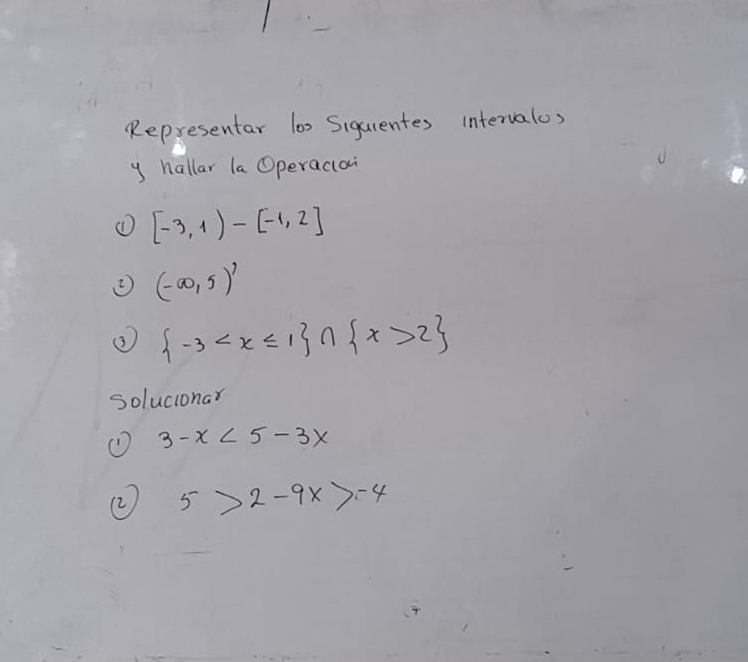 Representar los Siguientes intervalos
y hallar la Operación
① [-3, 1) - [-1, 2]
② (-∞, 5)'
③ { -3 < x ≤ 1} ∩ { x > 2}
Solucionar
① 3 - x < 5 - 3x
② 5 > 2 - 9x > -4